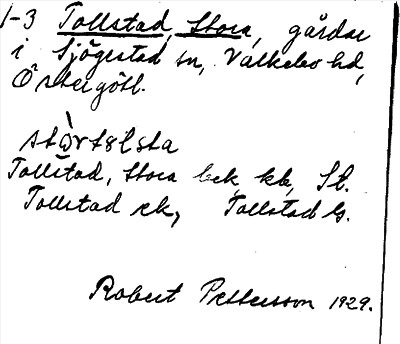 1-3 Tollstad, Stora, gårdar
i Sjögestad sn, Valkebo hd,
Östergötl.
Tollstad, Stora bek, kb, St.
Tollstad ek, Tollstad ls.
Robert Pettersson 1929.